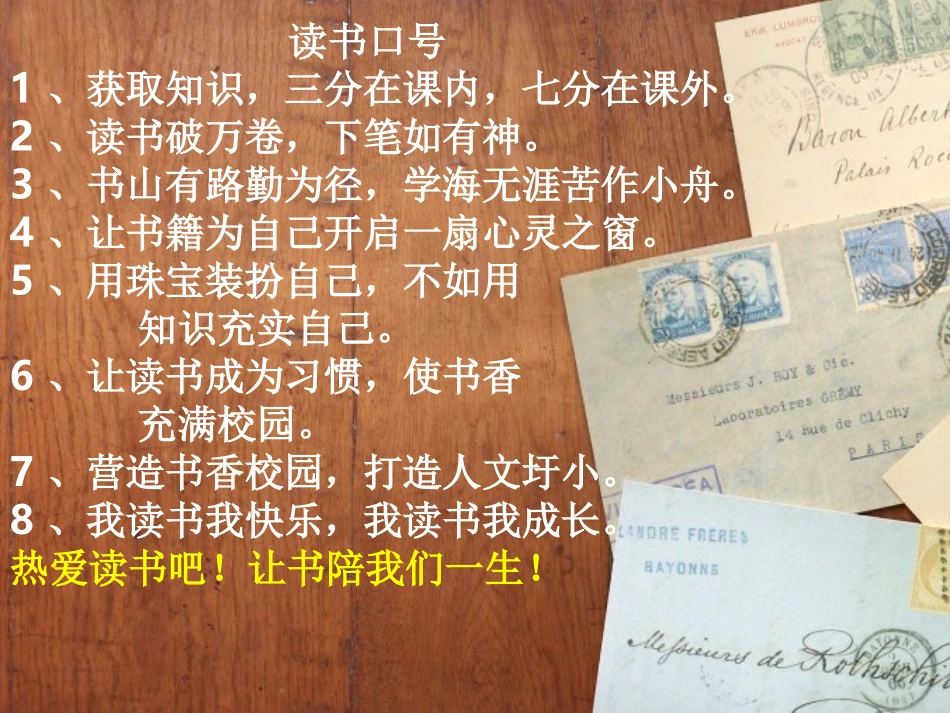 读书口号
1 、获取知识，三分在课内，七分在课外。
2 、读书破万卷，下笔如有神。
3 、书山有路勤为径，学海无涯苦作小舟。
4 、让书籍为自己开启一扇心灵之窗。
5 、用珠宝装扮自己，不如用
知识充实自己。
6 、让读书成为习惯，使书香
充满校园。
7 、营造书香校园，打造人文圩小。
8 、我读书我快乐，我读书我成长。
热爱读书吧！让书陪我们一生！
ERIK LUMBRO
AVOCAT
Baron Albert
Palais
Messieurs J. ROY & Cie.
Laboratoires GRÉMY
14 Rue de Clichy
PARIS
LANDRE FRÈRES
BAYONNE
Messieurs de Rothschil